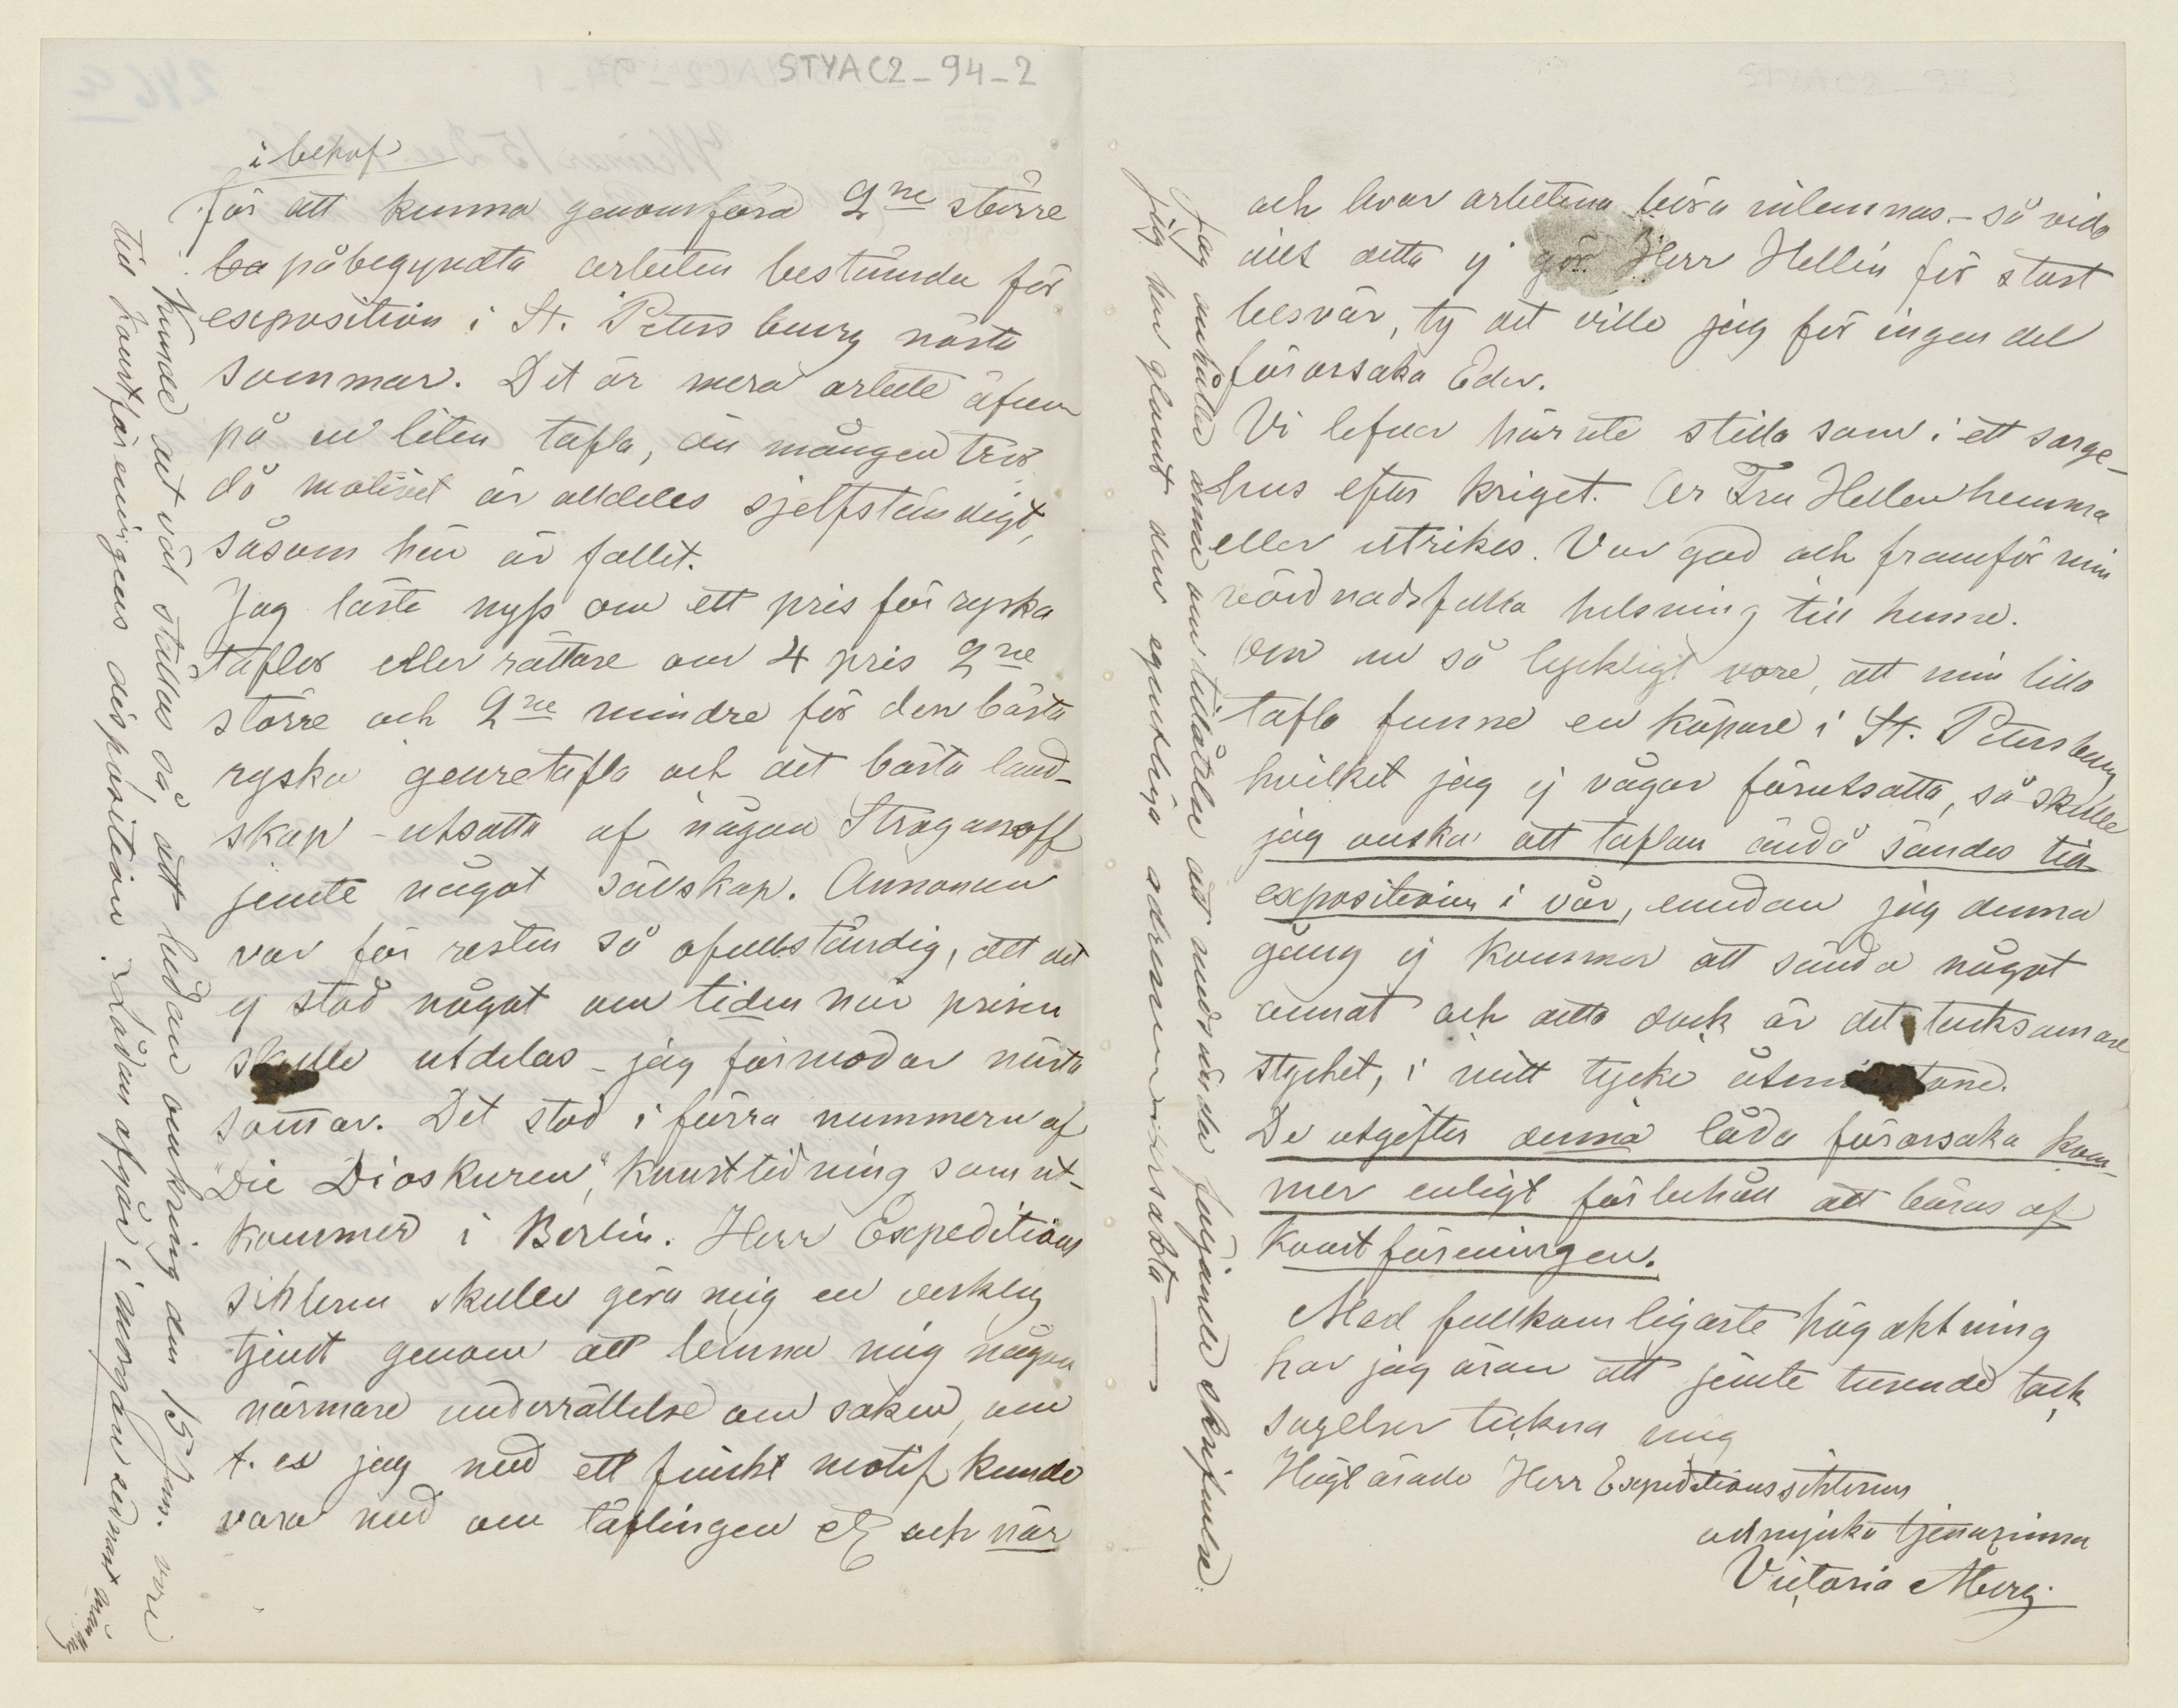 STYAC2-94-2
i behof
för att kunna genomföra 2ne större
ba påbegyndta arbeten bestämda för
exposition i St. Petersburg nästa
sommar. Det är mera arbete äfven
på en liten tafla, än mången tror
då motivet är alldeles sjelfständigt,
såsom här är fallet.
Jag läste nyss om ett pris för ryska
taflor eller rättare om 4 pris 2ne
större och 2ne mindre för den bästa
ryska genretafla och det bästa land-
skap - utsatta af någon Stroganoff
jemte något sällskap. Annonsen
var för resten så ofullständig, att det
ej stod något om tiden när prisen
skulle utdelas - jag förmodar nästa
som̄ar. Det stod i förra nummern af
"Die Dioskuren", konsttidning som ut-
kommer i Berlin. Herr Expeditions
sekteren skulle göra mig en verklig
tjenst genom att lemna mig någon
närmare underrättelse om saken, om
t. ex jag med ett finskt motif kunde
vara med om täflingen etc och när
kunde det väl ställas så, att lådan omkring den 15 Jan. vore
till konstföreningens disposition. Lådan afgår i morgon
och hvar arbetena böra inlemnas. - så vida
allt detta ej gör Herr Hellén för stort
besvär, ty det ville jag för ingen del
förorsaka Eder.
Vi lefver härute stilla som i ett sorge-
hus efter kriget. Är Fru Hellen hemma
eller utrikes. Var god och framför min
vördnadsfulla helsning till henne.
Om nu så lyckligt vore, att min lilla
tafla funne en köpare i St. Petersburg
hvilket jag ej vågar förutsätta, så skulle
jag önska att taflan ändå sändes till
expositionen i vår, emedan jag denna
gång ej kommer att sända något
annat och detta dock är det tacksammare
stycket, i mitt tycke åtminstone.
De utgifter denna låda förorsaka kom-
mer enligt förbehåll att bäras af
Konstföreningen.
Med fullkomligaste högaktning
har jag äran att jemte tusende tack
sägelser teckna mig
Högtärade Herr Expeditionssekterens
ödmjuka tjenarinna
Victoria Åberg.
Jag anhåller ännu om tillåtelse att medsända följande skrifvelse:
jag har glömt den egentliga adressen